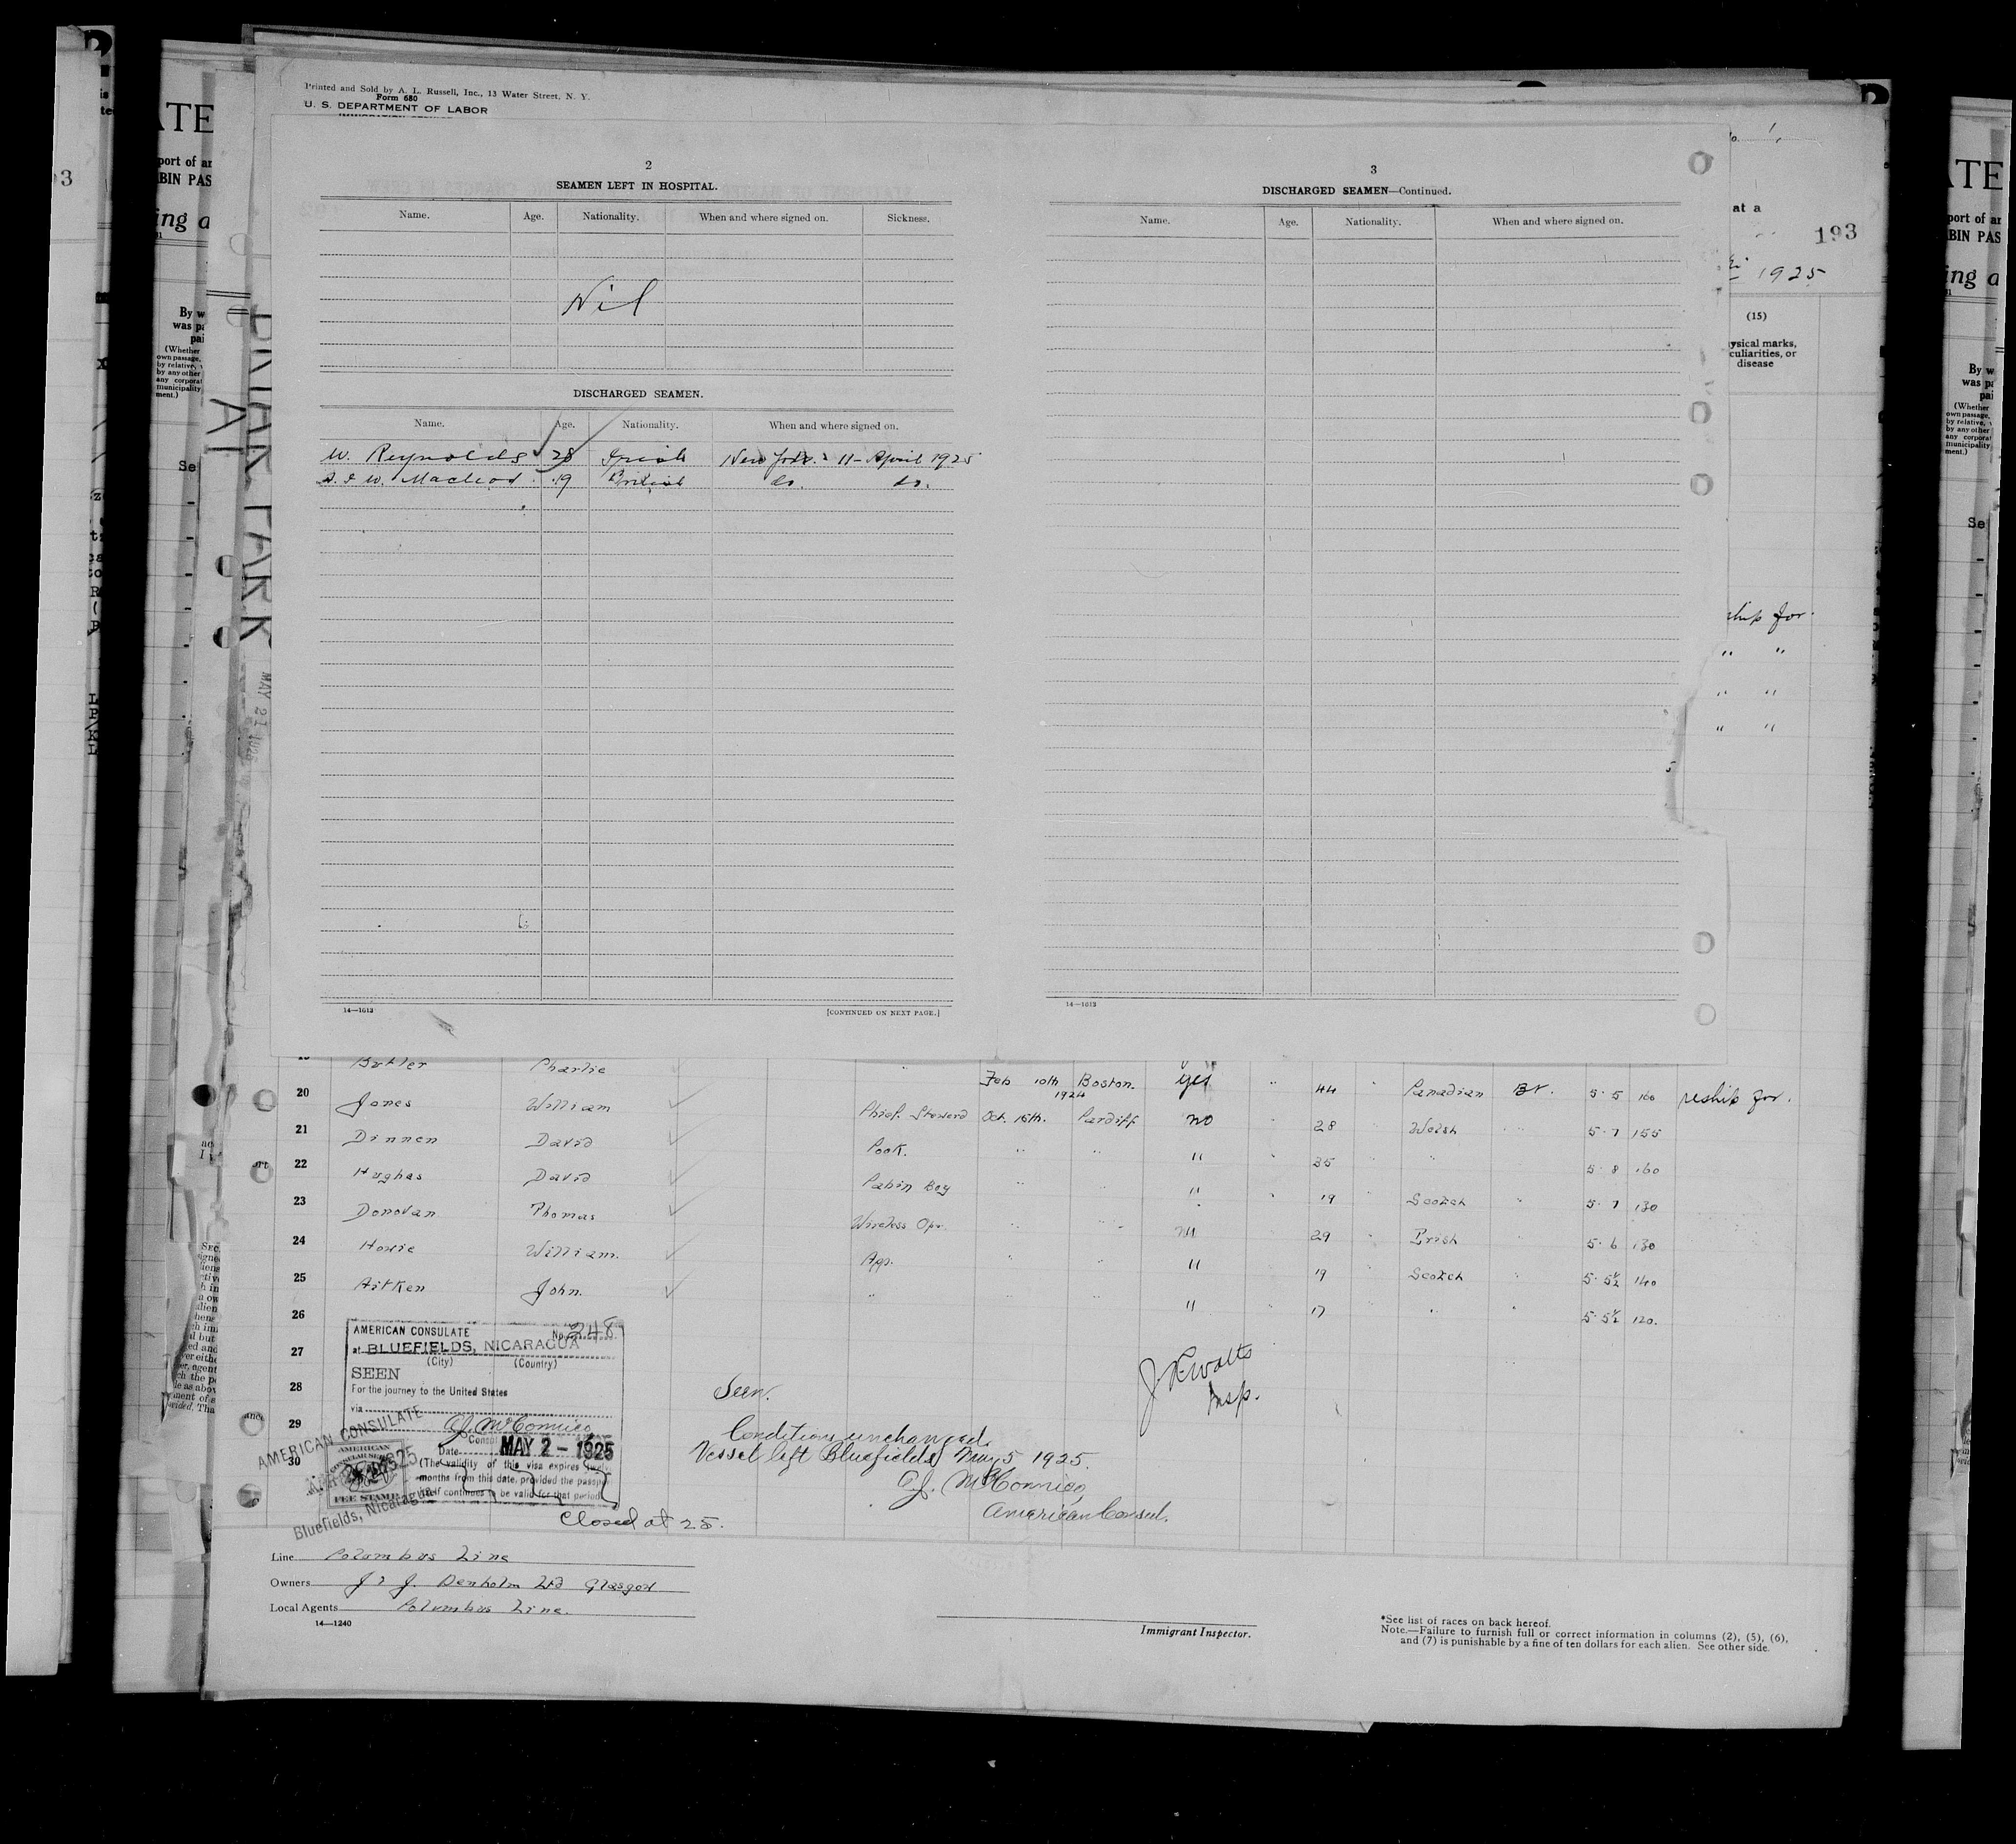 Printed and Sold by A. L. Russell, Inc., 13 Water Street, N. Y.
Form 680
U. S. DEPARTMENT OF LABOR
2
SEAMEN LEFT IN HOSPITAL.
Name. Age. Nationality. When and where signed on. Sickness.
Nil
DISCHARGED SEAMEN.
Name. Age. Nationality. When and where signed on.
W. Reynolds 28 Irish New York. 11- April 1925
W. Macleod 19 British do. do.
14—1613
[CONTINUED ON NEXT PAGE.]
3
DISCHARGED SEAMEN—Continued.
Name. Age. Nationality. When and where signed on.
14—1613
at a
193
1925
(15)
ysical marks,
culiarities, or
disease
ship for.
" "
" "
" "
MAY 21 1925
Butler Charlie Feb 10th Boston. yes " 44 " Canadian Br. 5.5 160 reship for.
20 Jones William Chief. Steward Oct. 16th. 1924 Cardiff no " 28 " Welsh " 5.7 155
21 Dinnen David Cook. " " " " 35 " " 5.8 160
22 Hughes David Cabin Boy " " " " 19 " Scotch " 5.7 130
23 Donovan Thomas Wireless Opr. " " " 29 " Irish " 5.6 130
24 Howie William. App. " " " 19 " Scotch " 5.5½ 140
25 Aitken John. " " " " 17 " " " 5.5½ 120.
26
27
28
29
30
AMERICAN CONSULATE No. 248
at BLUEFIELDS, NICARAGUA
(City) (Country)
SEEN
For the journey to the United States
via
A.J. McConnico
Consul
Date MAY 2 - 1925
(The validity of this visa expires twelve
months from this date, provided the passport
itself continues to be valid for that period.)
AMERICAN CONSULATE
AMERICAN
CONSULAR SERVICE
FEE STAMP
Bluefields, Nicaragua
Closed at 25.
Seen.
Conditions unchanged.
Vessel left Bluefields May 5 1925.
A.J. McConnico,
American Consul.
Insp.
Line Columbus Line
Owners J & J. Denholm Ltd Glasgow
Local Agents Columbus Line.
14—1240
Immigrant Inspector.
*See list of races on back hereof.
Note.—Failure to furnish full or correct information in columns (2), (5), (6),
and (7) is punishable by a fine of ten dollars for each alien. See other side.